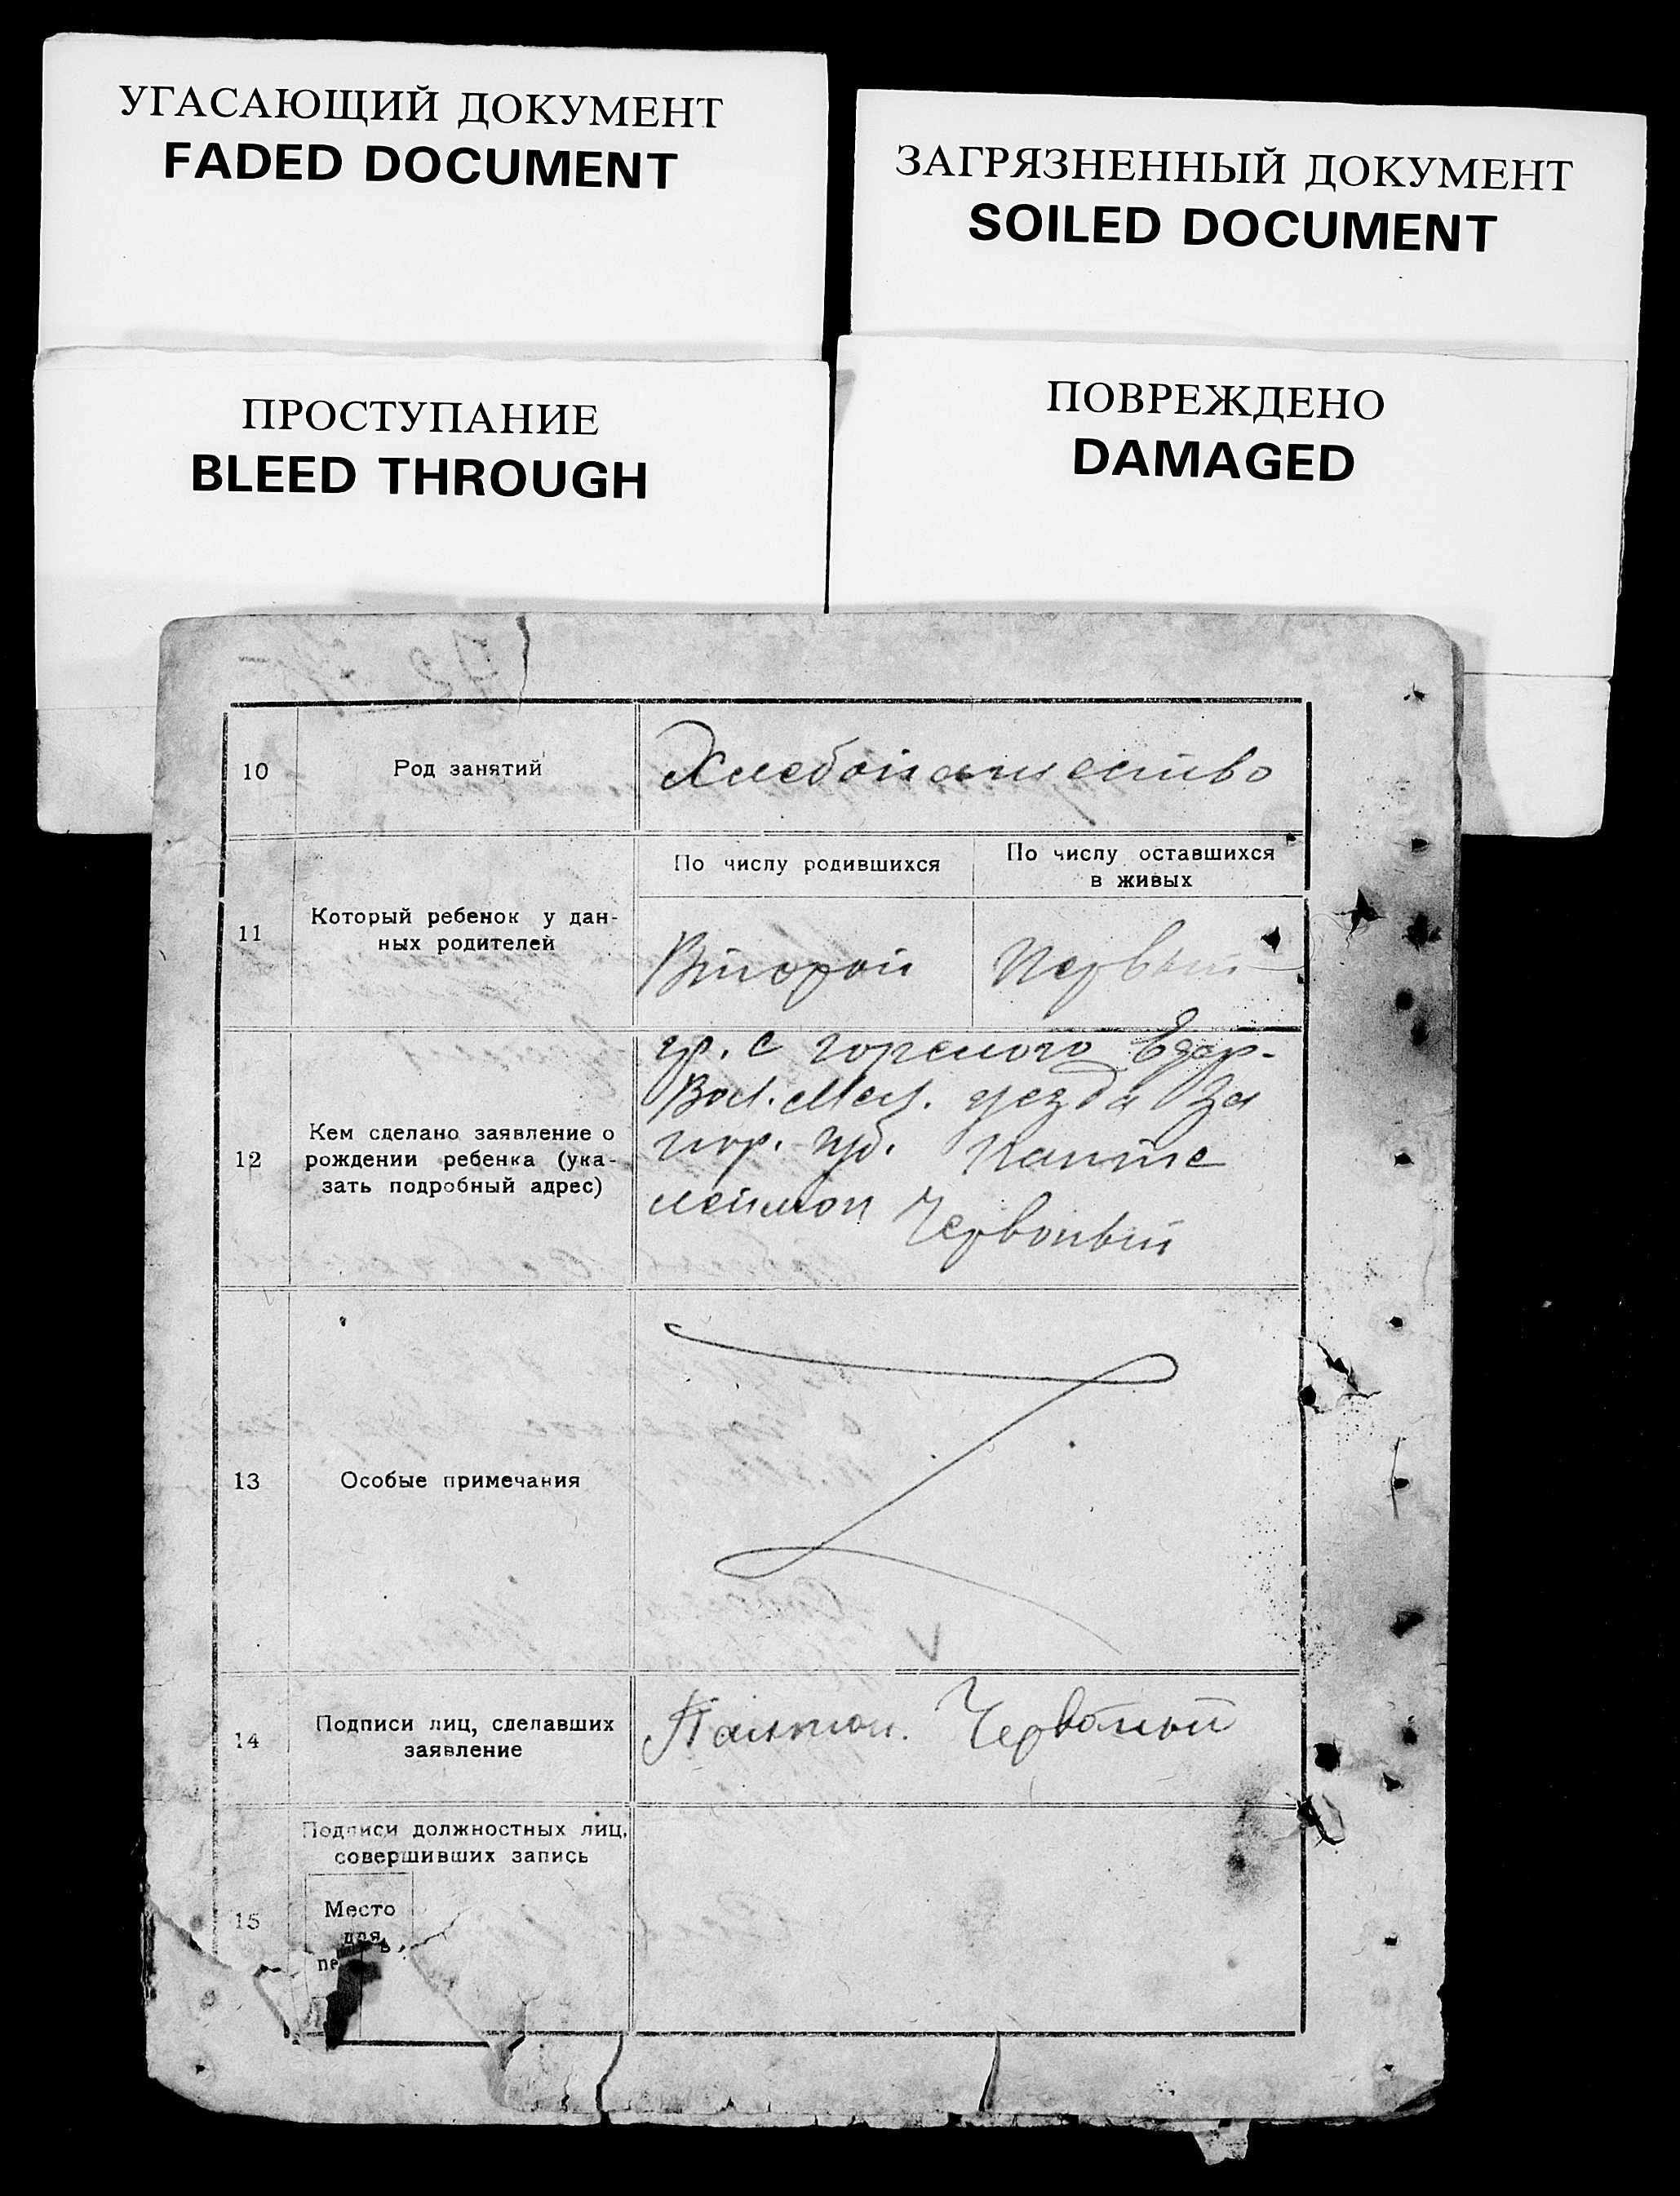 УГАСАЮЩИЙ ДОКУМЕНТ
FADED DOCUMENT
ЗАГРЯЗНЕННЫЙ ДОКУМЕНТ
SOILED DOCUMENT
ПРОСТУПАНИЕ
BLEED THROUGH
ПОВРЕЖДЕНО
DAMAGED
10
Род занятий
Хлебопашество
11
Который ребенок у дан-
ных родителей
По числу родившихся
По числу оставшихся
в живых
Второй
Первый
12
Кем сделано заявление о
рождении ребенка (ука-
зать подробный адрес)
гр. с горелого
Вол. Мел. уезда За
пор. губ. Панте
леймон Червоный
13
Особые примечания
14
Подписи лиц, сделавших
заявление
Червоный
15
Подписи должностных лиц,
совершивших запись
Место
для